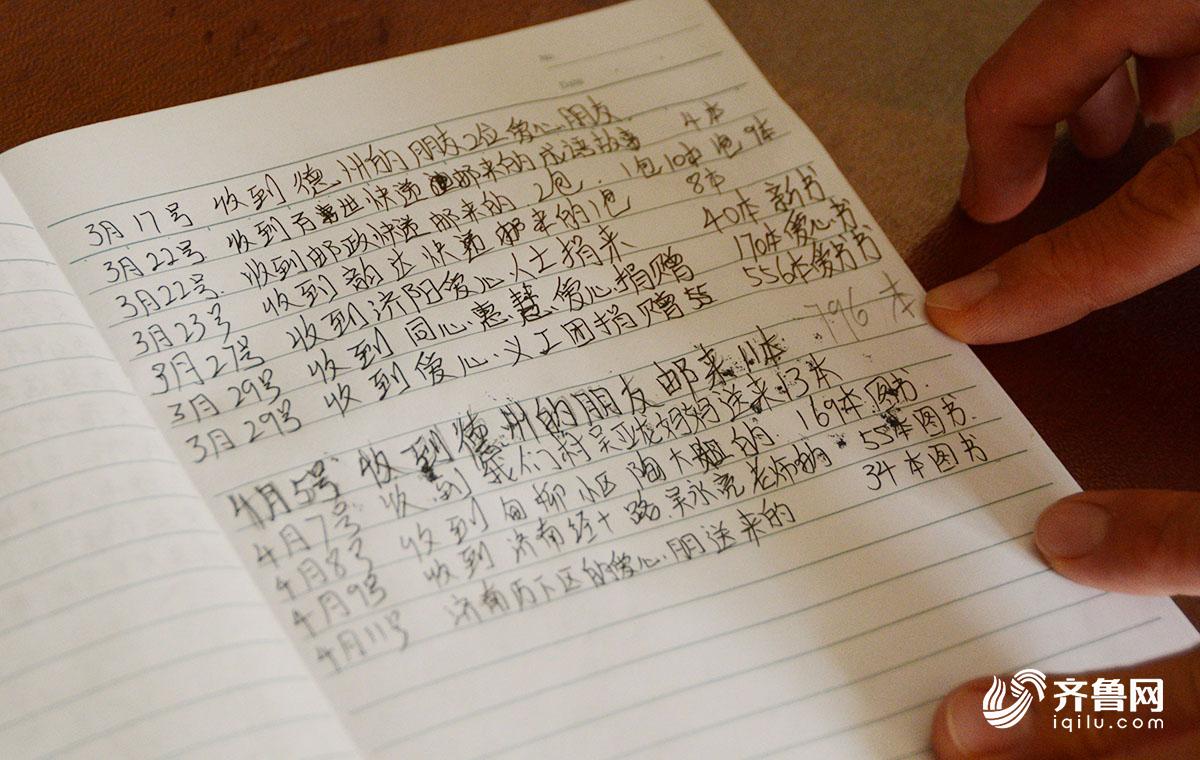 No
Date
3月17号 收到德州的朋友2位爱心朋友.
3月22号 收到百世快递邮来的成语故事 4本
3月22号. 收到邮政快递邮来的 2包. 1包10本 包9本
3月23号 收到韵达快递邮来的1包 8本
3月27号 收到济阳爱心人士捐来 40本新书
3月29号 收到同心惠慧爱心捐赠 170本爱心书
3月29号 收到爱心义工团捐赠 556本爱书书
796本
4月5号 收到德州的朋友邮来11本
4月7号 收到我们将吴亚龙妈妈送来13本
4月8号 收到甸柳小区陶大姐的. 169本图书.
4月9号 收到济南经十路吴永亮老师 55本图书.
4月11号 济南历下区的爱心朋送来的 34本图书
齐鲁网
iqilu.com